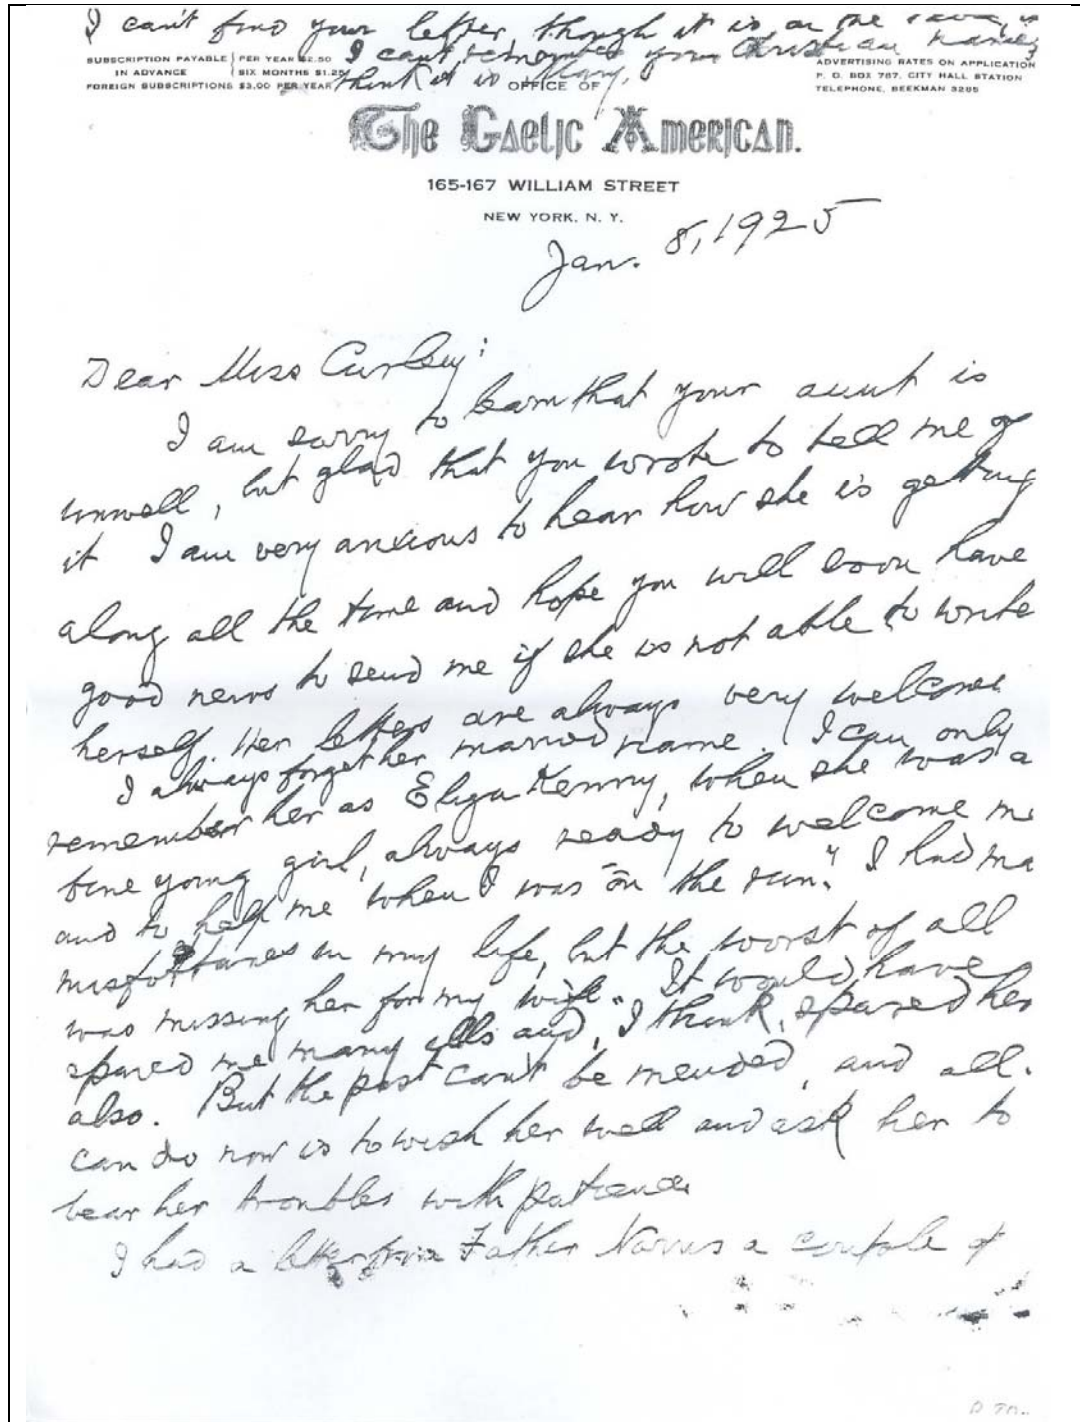 I can't find your letter, though it is in the
I can't remember your Christian name,
think it is Mary,
SUBSCRIPTION PAYABLE IN ADVANCE PER YEAR $2.50 SIX MONTHS $1.25
FOREIGN SUBSCRIPTIONS $3.00 PER YEAR
OFFICE OF
ADVERTISING RATES ON APPLICATION
P. O. BOX 767, CITY HALL STATION
TELEPHONE, BEEKMAN 3205
The Gaelic American.
165-167 WILLIAM STREET
NEW YORK, N. Y.
Jan. 8, 1925
Dear Miss Curley:
I am sorry to learn that your aunt is
unwell, but glad that you wrote to tell me of
it I am very anxious to hear how she is getting
along all the time and hope you will soon have
good news to send me if she is not able to write
herself. Her letters are always very welcome
I always forget her married name. I can only
remember her as Eliza Kenny, when she was a
fine young girl, always ready to welcome me
and to help me when I was "on the run." I had ma
misfortunes in my life, but the worst of all
was missing her for my wife. It would have
spared me many ills and, I think, spared her
also. But the past can't be mended, and all
can do now is to wish her well and ask her to
bear her troubles with patience
I had a letter from Father a couple of